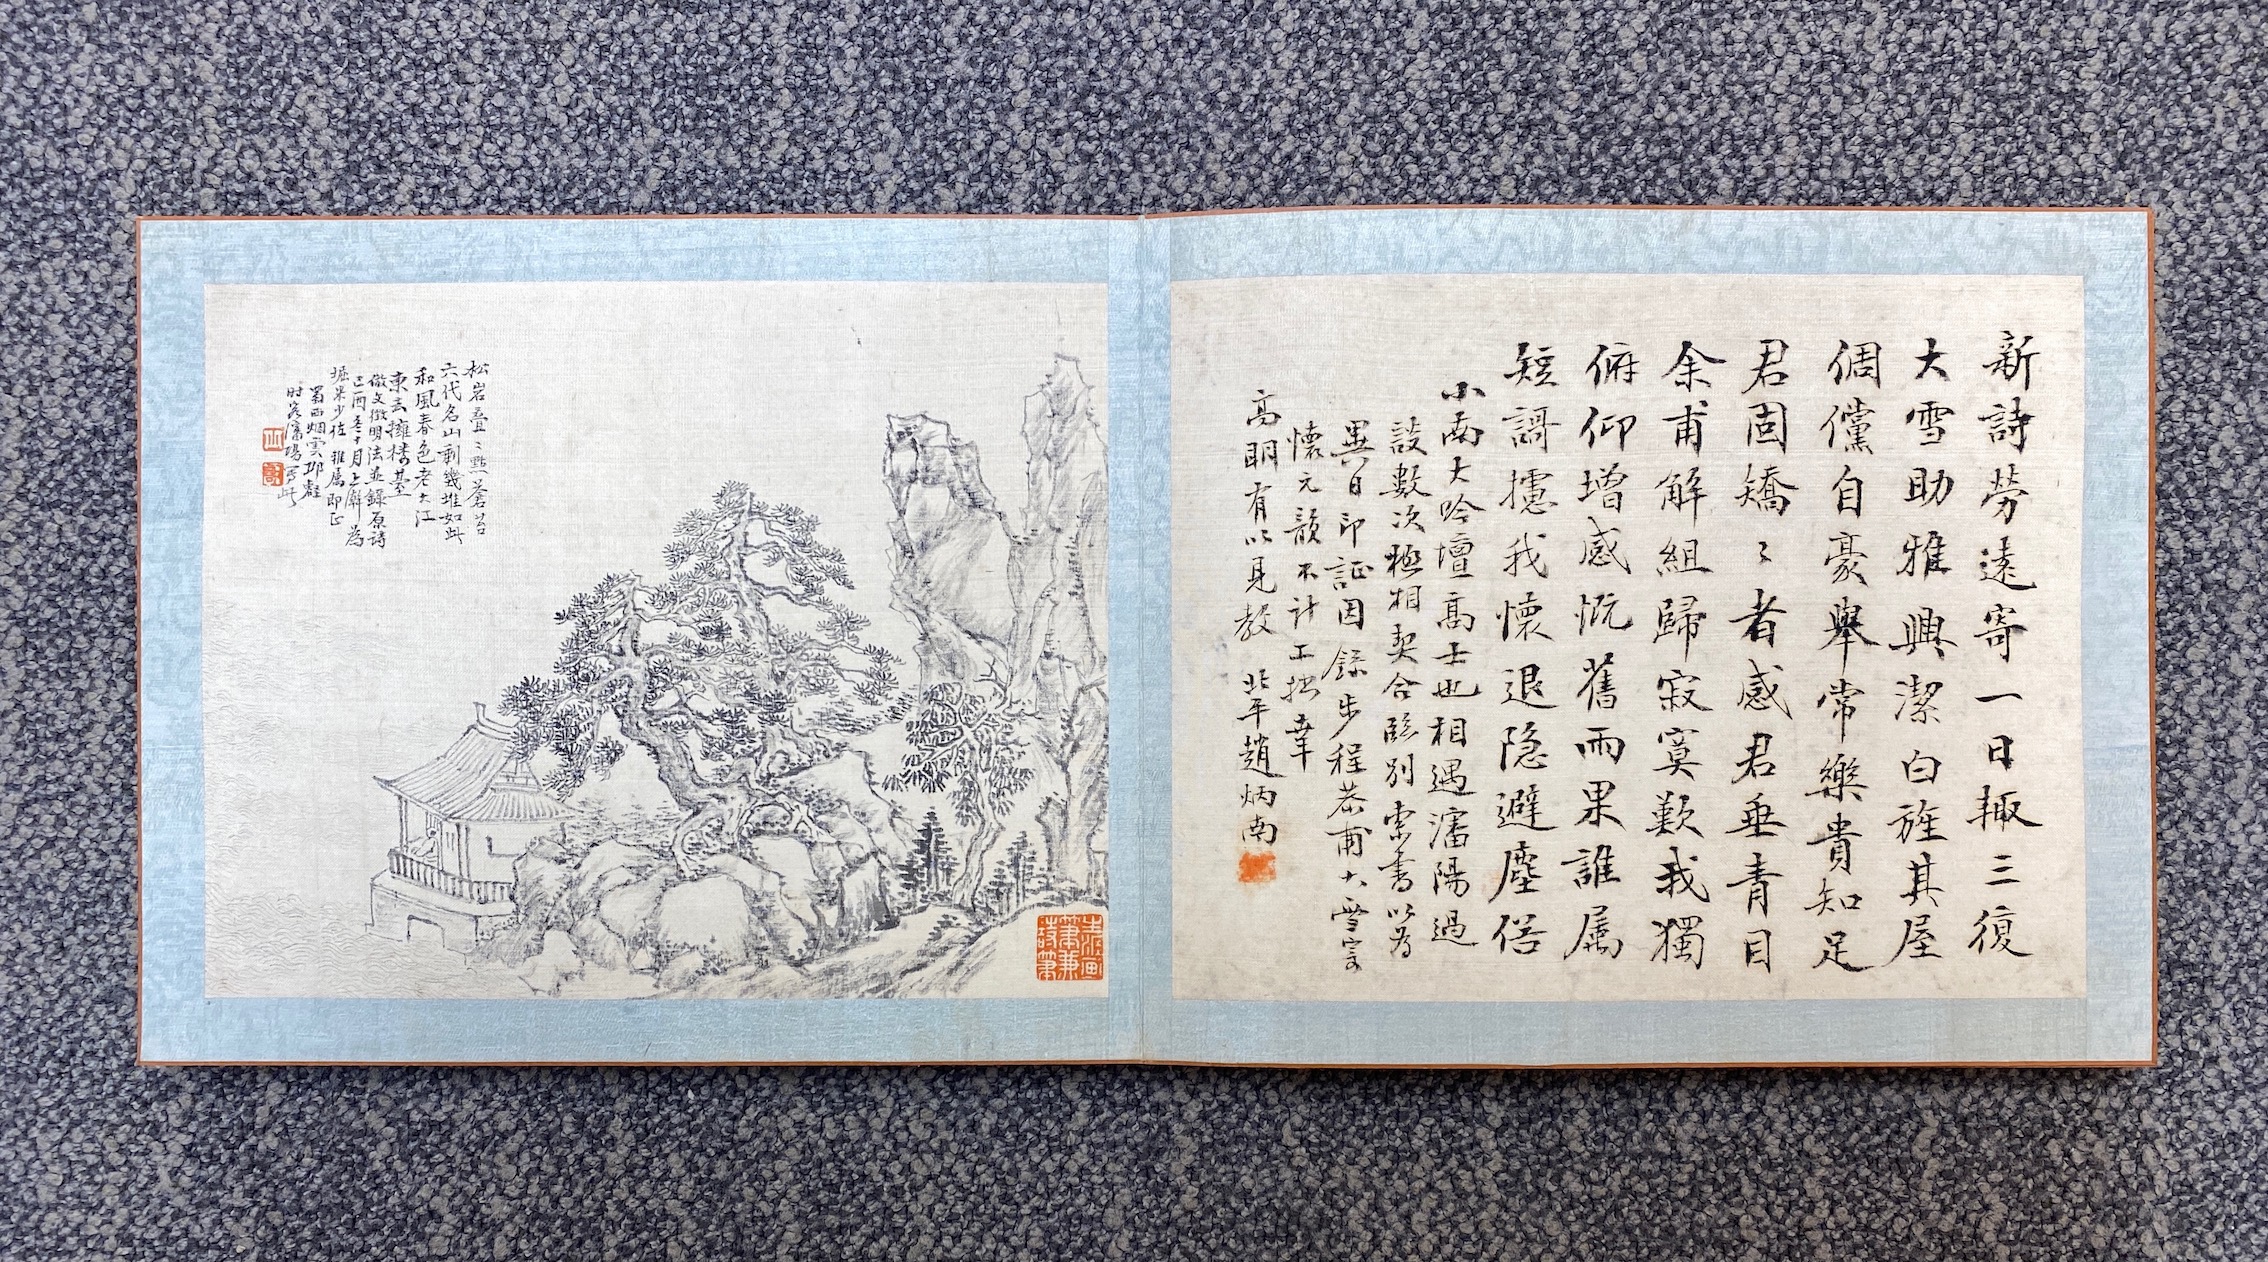 新詩勞遠寄一日輙三復
大雪助雅興潔白旌其屋
倜儻自豪舉常樂貴知足
君固矯〻者感君垂青目
余甫解組歸寂寞歎我獨
俯仰增感慨舊雨果誰属
短謌攄我懷退隐避塵俗
小雨大吟壇高士也相遇瀋陽過
談數次極相契合臨别索書以為
異日印証因錄步程恭甫大雪言
懷元韻不計工拙幸
高明有以見教 北平趙炳南
松岩叠〻點蒼苔
六代名山剩幾堆如此
和風春色老大江
東去擁樓臺
倣文徵明法並錄原詩
己酉冬十月上澣為
堀米少佐雅属即正
蜀西烟雲邨
时客瀋陽寫此